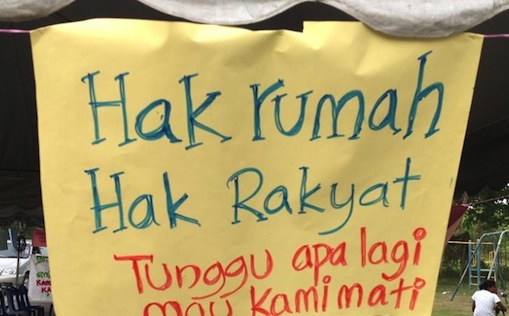 Hak rumah
Hak Rakyat
Tunggu apa lagi
mau kami mati